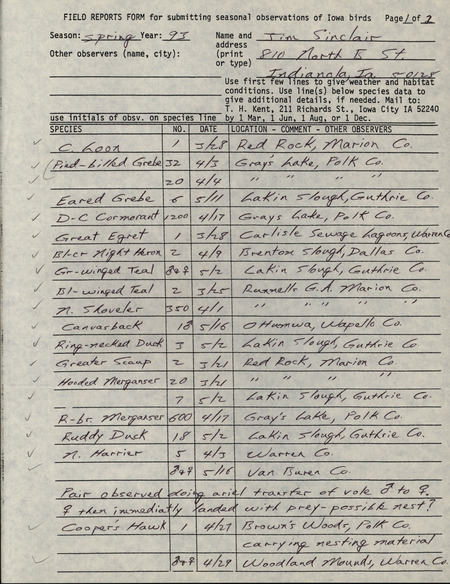 FIELD REPORTS FORM for submitting seasonal observations of Iowa birds Page 1 of 2
Season: Spring Year: 93 Name and Jim Sinclair
Other observers (name, city): address 810 North B St.
(print
or type) Indianola, Ia. 50125
Use first few lines to give weather and habitat
conditions. Use line(s) below species data to
give additional details, if needed. Mail to:
T. H. Kent, 211 Richards St., Iowa City IA 52240
use initials of obsv. on species line by 1 Mar, 1 Jun, 1 Aug, or 1 Dec.
SPECIES NO. DATE LOCATION - COMMENT - OTHER OBSERVERS
C. Loon 1 3/28 Red Rock, Marion Co.
Pied-billed Grebe 32 4/3 Gray's Lake, Polk Co.
20 4/4 " " " "
Eared Grebe 6 5/11 Lakin Slough, Guthrie Co.
D-C Cormorant 1200 4/17 Grays Lake, Polk Co.
Great Egret 1 3/28 Carlisle Sewage Lagoons, Warren Co
Bl-cr Night Heron 2 4/9 Brenton Slough, Dallas Co.
Gr-winged Teal ♂♀ 5/2 Lakin Slough, Guthrie Co.
Bl-winged Teal 2 3/25 Runnells G.A. Marion Co.
N. Shoveler 350 4/1 " " " "
Canvasback 1♂ 5/16 Ottumwa, Wapello Co.
Ring-necked Duck 3 5/2 Lakin Slough, Guthrie Co
Greater Scaup 2 3/21 Red Rock, Marion Co.
Hooded Merganser 20 3/21 " " " "
7 5/2 Lakin Slough, Guthrie Co.
R-br. Merganser 600 4/17 Gray's Lake, Polk Co.
Ruddy Duck 18 5/2 Lakin Slough, Guthrie Co.
N. Harrier 5 4/3 Warren Co.
♂♀ 5/16 Van Buren Co.
Pair observed doing ariel transfer of vole ♂ to ♀.
♀ then immediatly landed with prey-possible nest?
Cooper's Hawk 1 4/27 Brown's Woods, Polk Co.
carrying nesting material
♂♀ 4/29 Woodland Mounds, Warren Co.